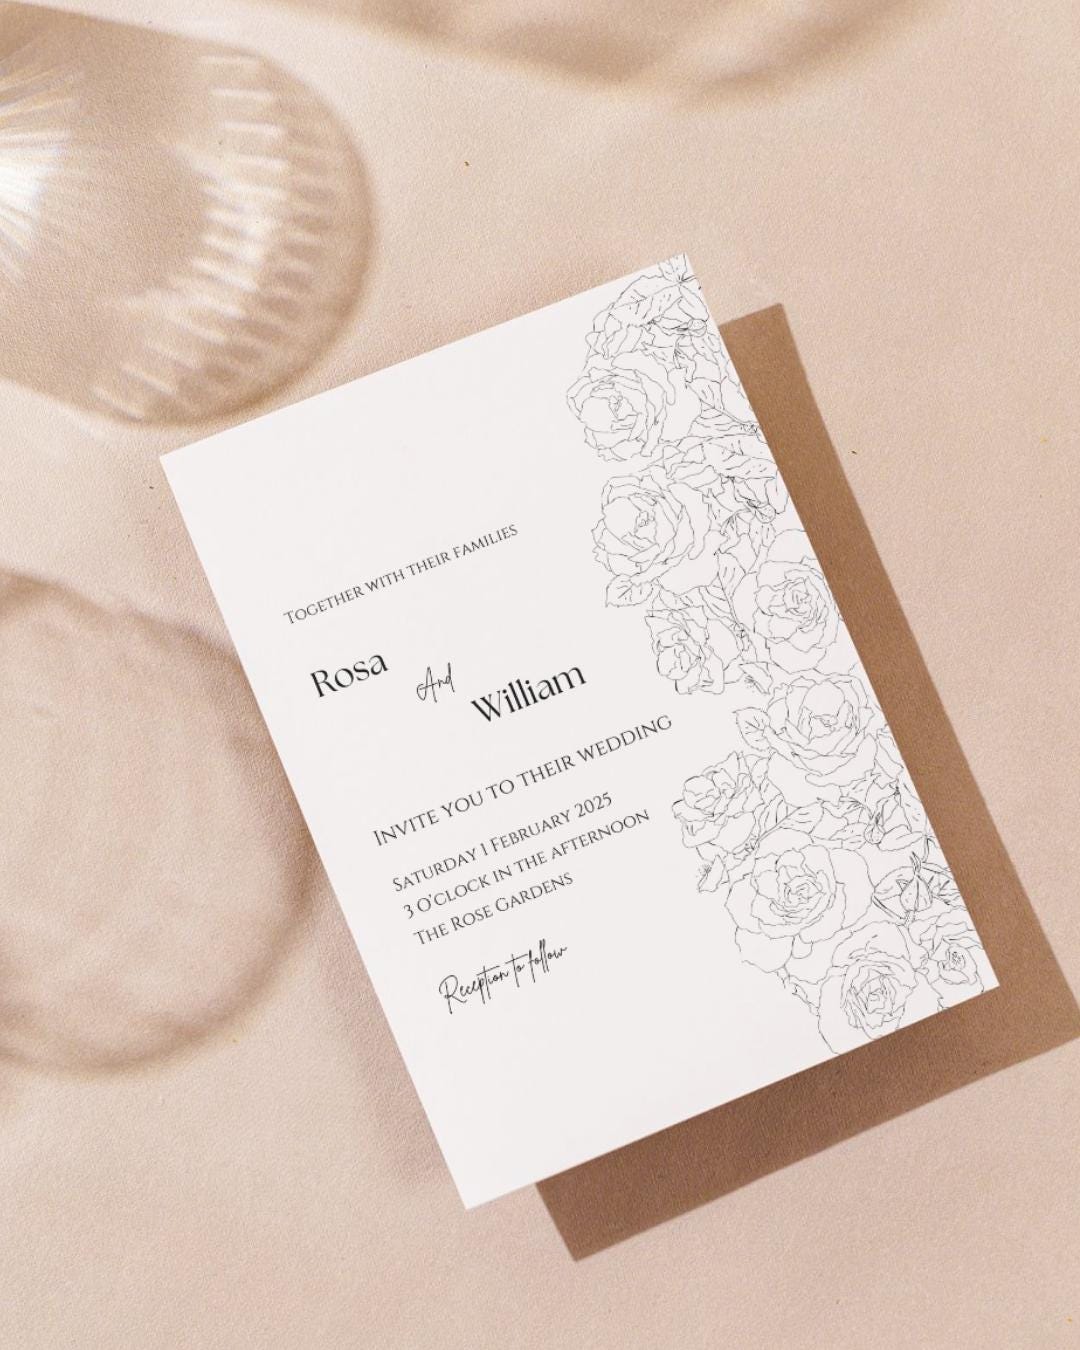 Together with their families
Rosa And William
Invite you to their wedding
Saturday 1 February 2025
3 o'clock in the afternoon
The Rose Gardens
Reception to follow